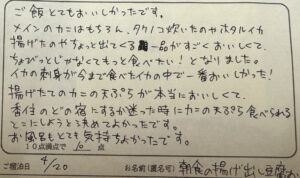 ご飯とてもおいしかったです。
メインのカニはもちろん、タケノコ炊いたのやホタルイカ
揚げたのやちょっと出てくる一品がすごくおいしくて、
ちょびっとじゃなくてもっと食べたい！となりました。
イカの刺身が今まで食べたイカの中で一番おいしかった！
揚げたてのカニの天ぷらが本当においしくて、
香住のどの宿にするか迷った時にカニの天ぷら食べられる
とこにしようと決めてよかったです。
お風呂もとても気持ちよかったです。
10点満点で 10 点
ご宿泊日 4/20 お名前(匿名可) 朝食の揚げ出し豆腐